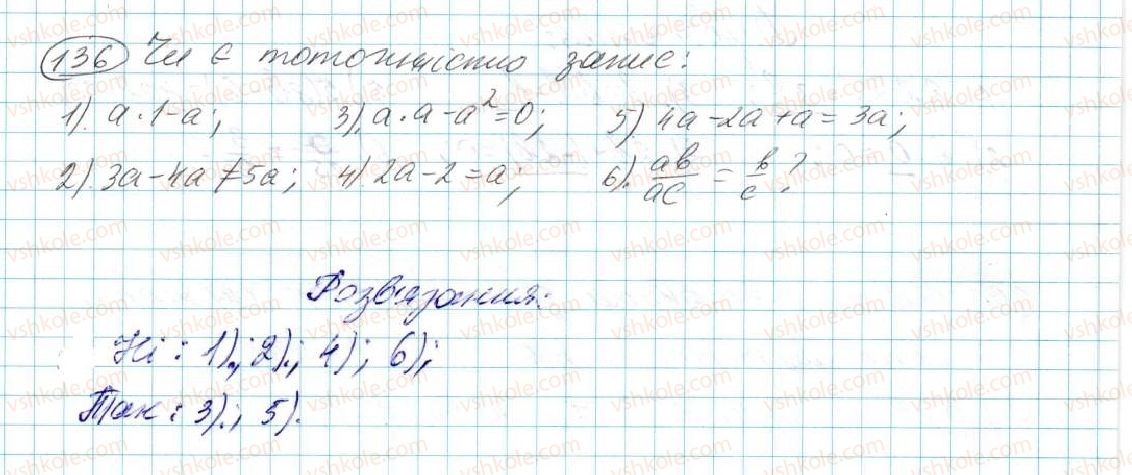 136 Чи є тотожністю запис:
1). a · 1 - a; 3). a · a - a² = 0; 5) 4a - 2a + a = 3a;
2). 3a - 4a ≠ 5a; 4) 2a - 2 = a; 6). ab/ac = b/c?
Розв'язання:
Ні : 1).; 2).; 4); 6);
Так : 3).; 5).